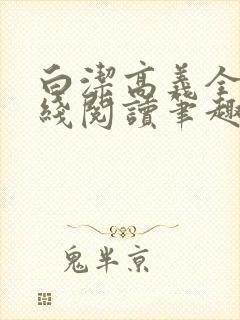 白潔高義全
綫閱讀筆趣
鬼半京